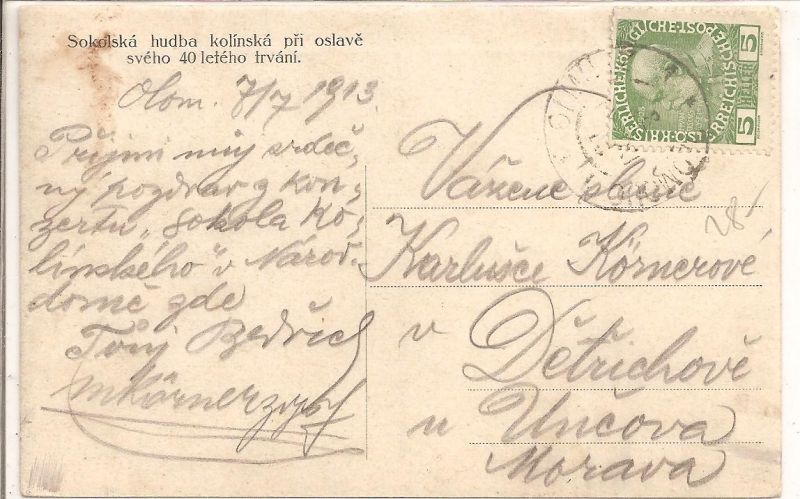 Sokolská hudba kolínská při oslavě
svého 40 letého trvání.
Olom. 7/7 1913.
Přijmi můj srdeč-
ný pozdrav z kon-
zertu „Sokola Ko-
línského" v Národ.
domě zde
Tvůj Bedřich
MKörner
5 HELLER 5
Vážené slečně
Karlušce Körnerové
v
Dětřichově
u Unčova
Morava
28-